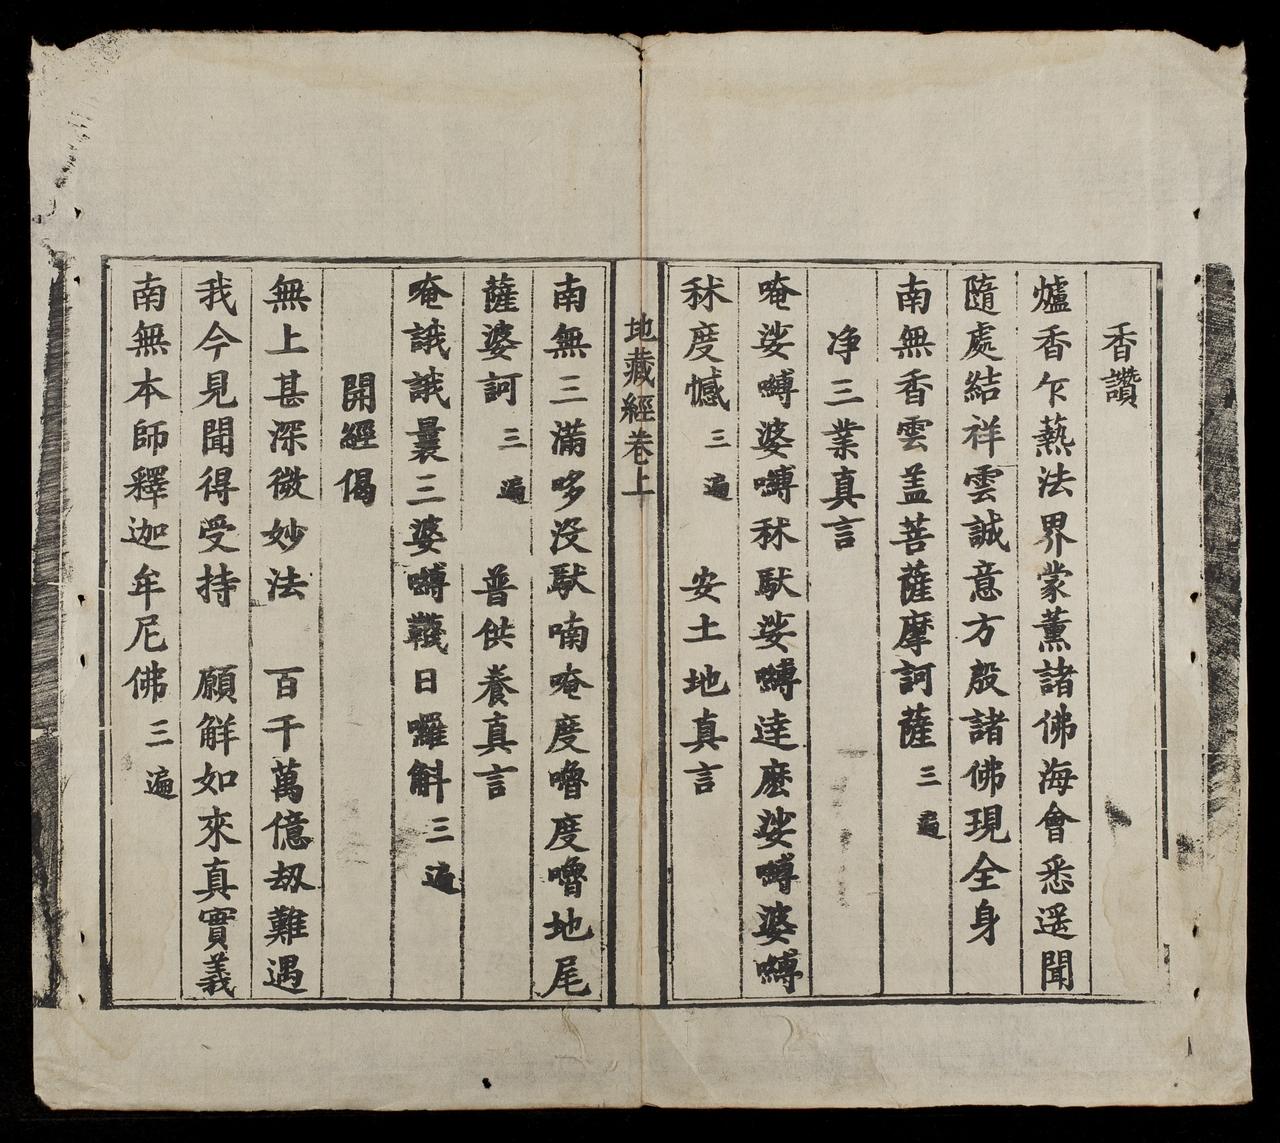 香讚
爐香乍熱法界蒙薰諸佛海會悉遥聞
隨處結祥雲誠意方殷諸佛現全身
南無香雲盖菩薩摩訶薩 三遍
净三業真言
唵娑嚩婆嚩秫馱娑嚩達麽娑嚩婆嚩
秫度憾 三遍 安土地真言
地藏經卷上
南無三滿哆没馱喃唵度嚕度嚕地尾
薩婆訶 三遍 普供養真言
唵誐誐曩三婆嚩韈日囉斛 三遍
開經偈
無上甚深微妙法 百千萬億刼難遇
我今見聞得受持 願觧如來真實義
南無本師釋迦牟尼佛 三遍